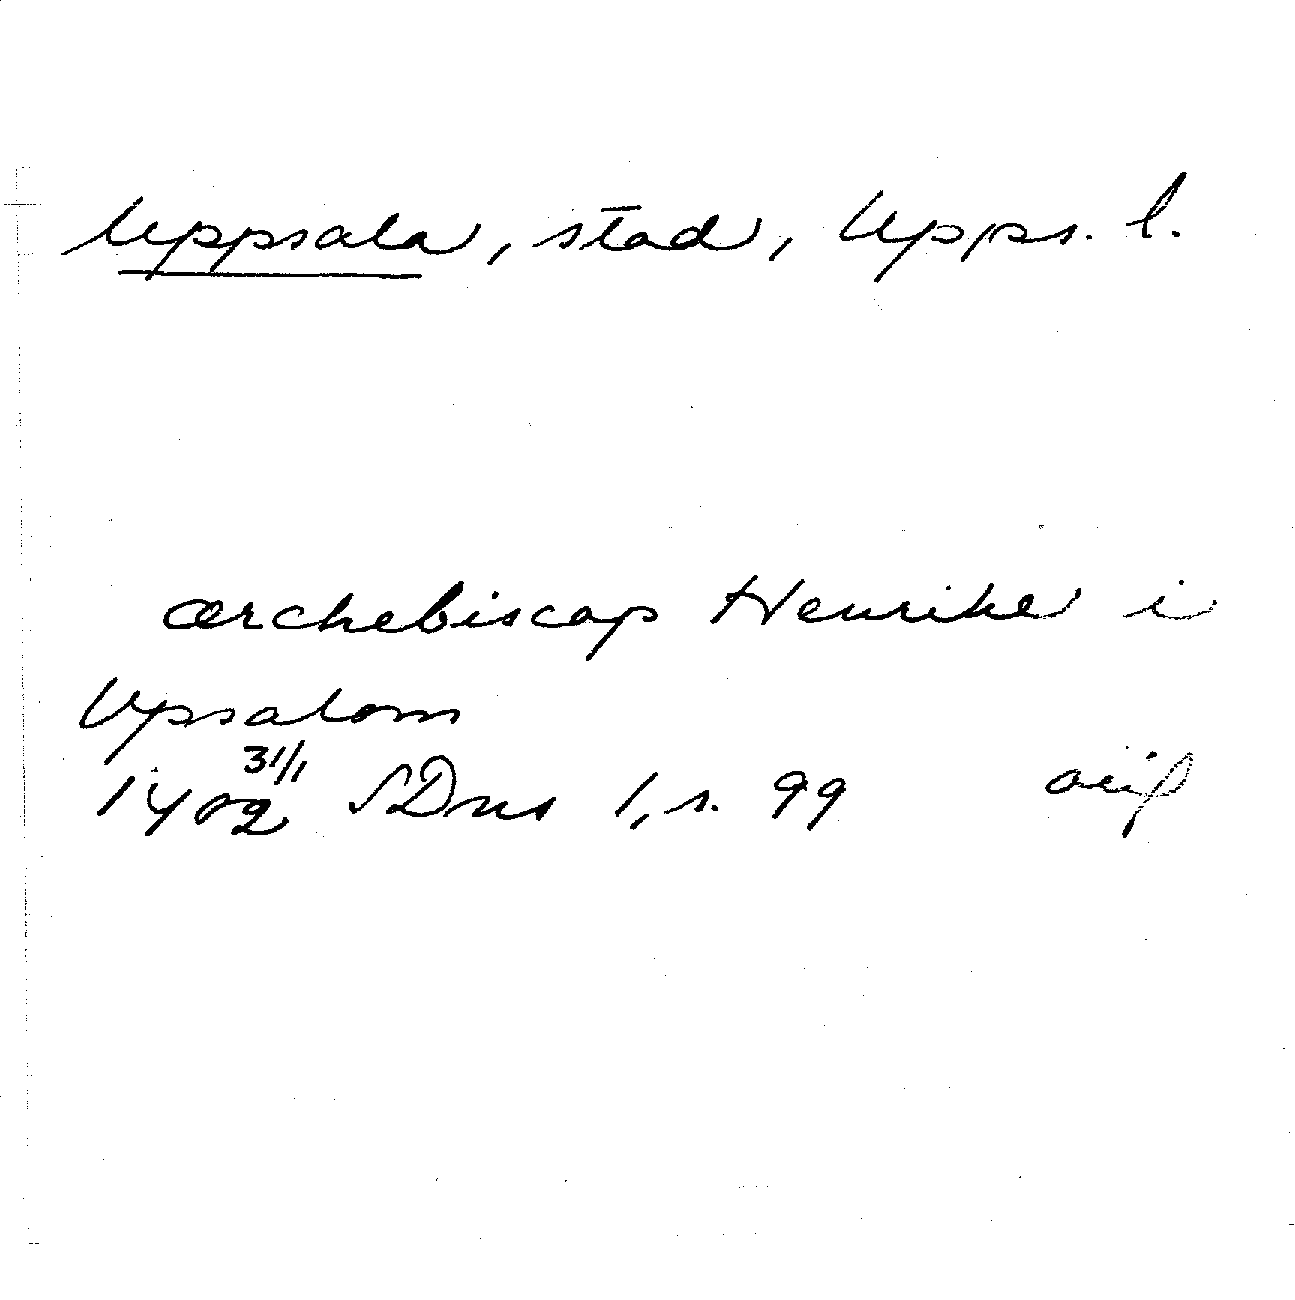 Uppsala, stad, Upps. l.
ærchebiscop Henrike i
Vpsalom
1402 31/1 SDns 1, s. 99